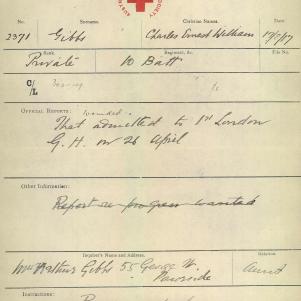 No. Surname. Christian Names.
2371 Gibbs Charles Ernest Welham 17/5/17
Rank. Regiment, &c. File No.
Private 10 Batt
C/L
OFFICIAL REPORTS: wounded
That admitted to 1st London
G.H. on 26 April
Other Information:
Report on progress wanted
Inquirer's Name and Address. Relation
Mrs Arthur Gibbs 55 George St. Aunt
Norwood
Instructions: